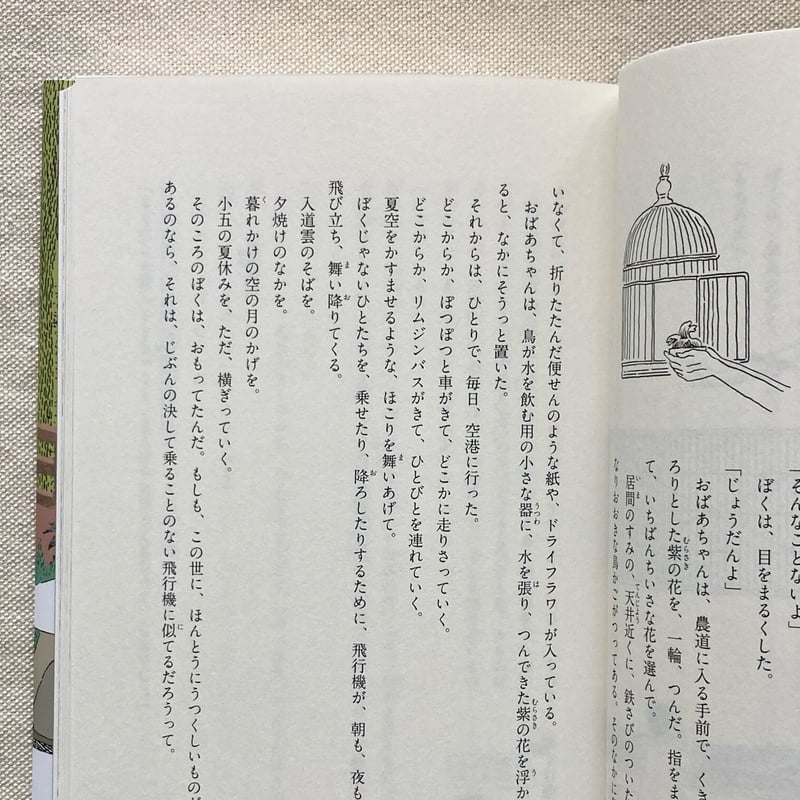 「そんなことないよ」
ぼくは、目をまるくした。
「じょうだんよ」
おばあちゃんは、農道に入る手前で、くき
ろりとした紫の花を、一輪、つんだ。指をま
て、いちばんちいさな花を選んで。
居間のすみの、天井近くに、鉄さびのついた
なりおおきな鳥かごがつってある。そのなかに
いなくて、折りたたんだ便せんのような紙や、ドライフラワーが入っている。
おばあちゃんは、鳥が水を飲む用の小さな器に、水を張り、つんできた紫の花を浮か
ると、なかにそうっと置いた。
それからは、ひとりで、毎日、空港に行った。
どこからか、ぽつぽつと車がきて、どこかに走りさっていく。
どこからか、リムジンバスがきて、ひとびとを連れていく。
夏空をかすませるような、ほこりを舞いあげて。
ぼくじゃないひとたちを、乗せたり、降ろしたりするために、飛行機が、朝も、夜も
飛び立ち、舞い降りてくる。
入道雲のそばを。
夕焼けのなかを。
暮れかけの空の月のかげを。
小五の夏休みを、ただ、横ぎっていく。
そのころのぼくは、おもってたんだ。もしも、この世に、ほんとうにうつくしいものが
あるのなら、それは、じぶんの決して乗ることのない飛行機に似てるだろうって。